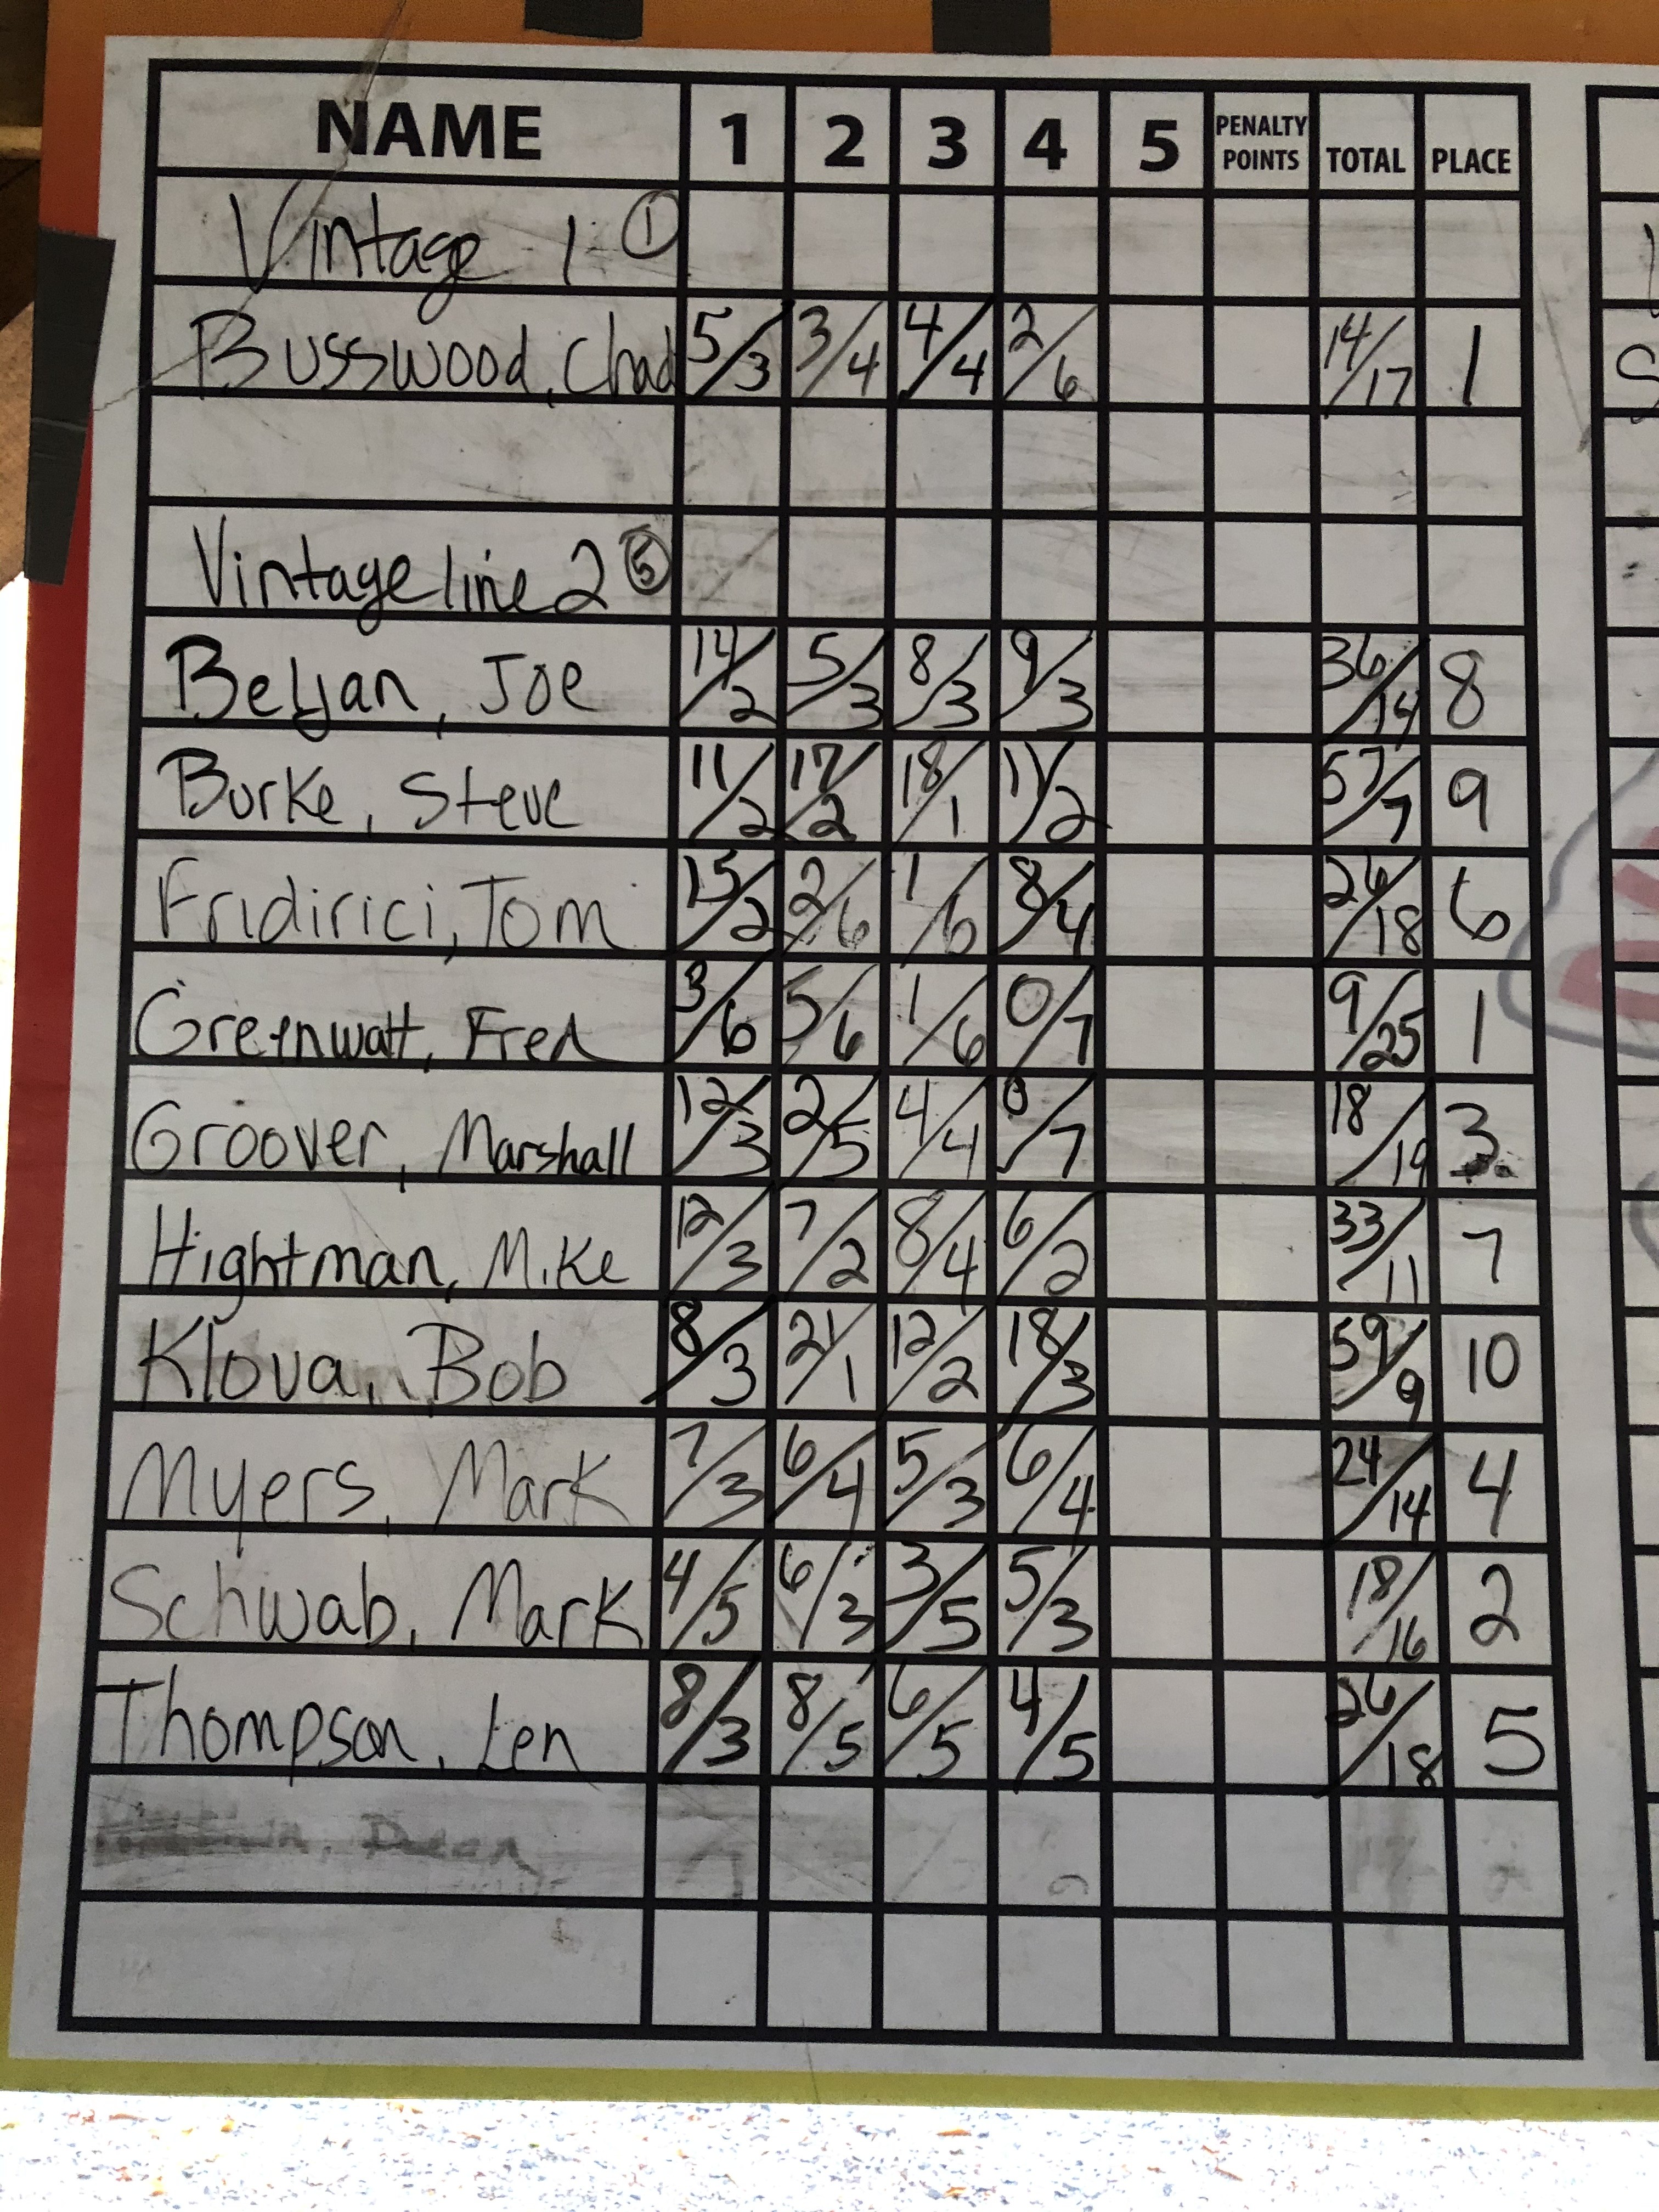 NAME 1 2 3 4 5 PENALTY POINTS TOTAL PLACE
Vintage 1 ①
Busswood, Chad 5/3 3/4 4/4 2/6 14/17 1
Vintage line 2 ⑤
Belyan, Joe 14/2 5/3 8/3 9/3 36/14 8
Burke, Steve 11/2 17/2 18/1 11/2 57/7 9
Fridirici, Tom 15/2 2/6 1/6 8/4 26/18 6
Greenwatt, Fred 3/6 5/6 1/6 0/7 9/25 1
Groover, Marshall 12/3 2/5 4/4 0/7 18/19 3
Hightman, Mike 12/3 7/2 8/4 6/2 33/11 7
Klova, Bob 8/3 21/1 12/2 18/3 59/9 10
Myers, Mark 7/3 6/4 5/3 6/4 24/14 4
Schwab, Mark 4/5 6/3 3/5 5/3 18/16 2
Thompson, Len 8/3 8/5 6/5 4/5 26/18 5
Dean